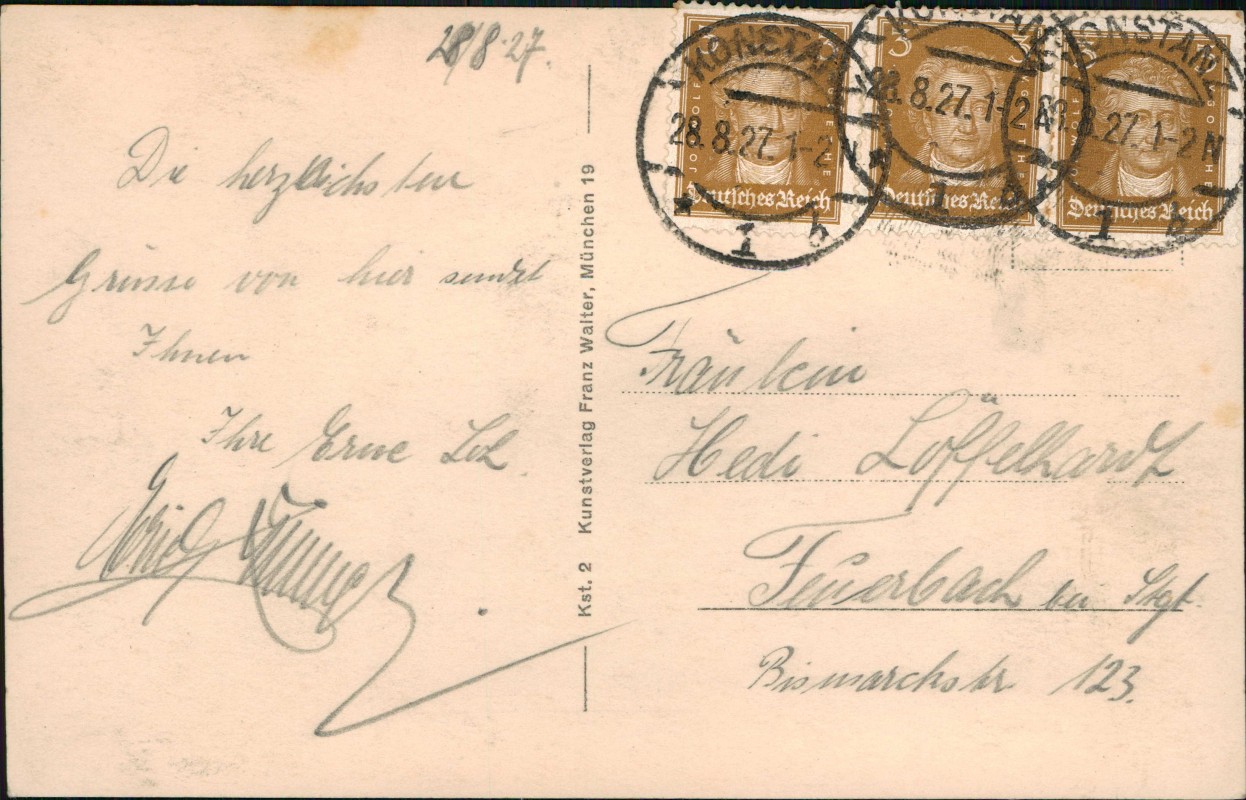 28/8.27.
Die herzlichsten
Grüsse von hier sendet
Ihnen
Ihre Erne
Kst. 2 Kunstverlag Franz Walter, München 19
KONSTANZ
28.8.27. 1-2
* 1 b
KONSTANZ
28.8.27. 1-2 N
* 1
KONSTANZ
8.27. 1-2 N
1 b
3
Deutsches Reich
Deutsches Reich
Deutsches Reich
Fräulein
Hedi Löffelhardt
Feuerbach bei Stgt.
Bismarckstr 123.